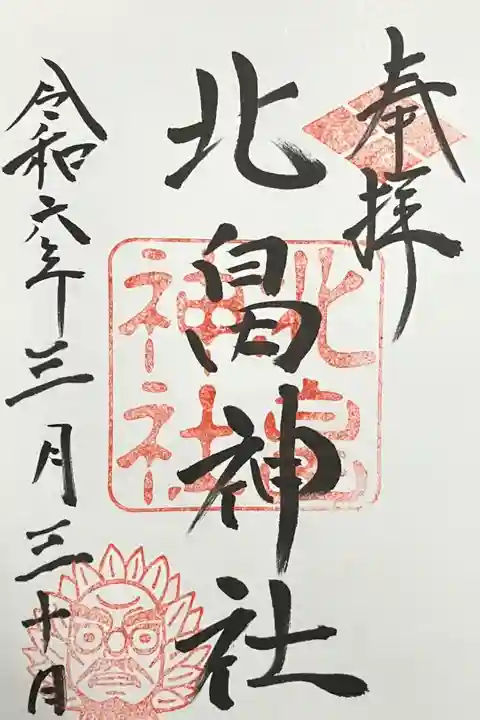 奉拝
北畠神社
北畠
神社
令和六年三月三十日